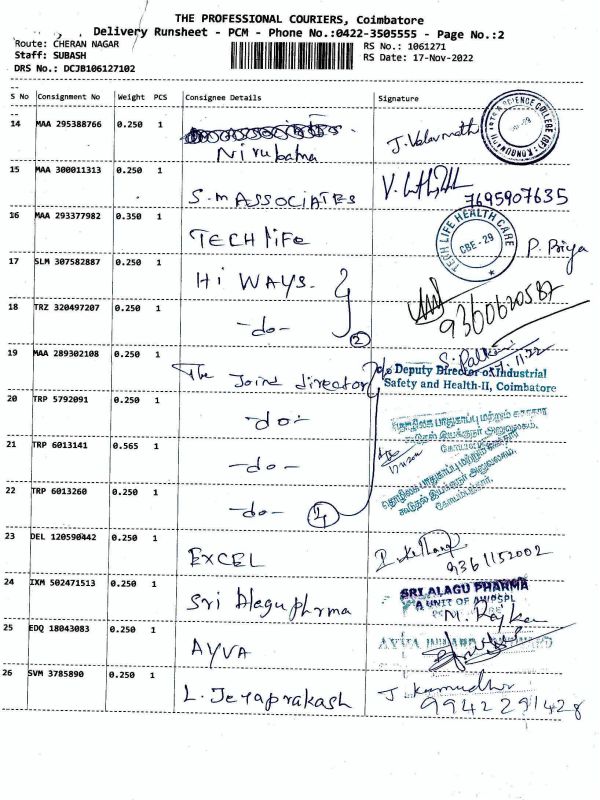 THE PROFESSIONAL COURIERS, Coimbatore
Delivery Runsheet - PCM - Phone No.:0422-3505555 - Page No.:2
Route: CHERAN NAGAR
Staff: SUBASH
DRS No.: DCJB106127102
RS No.: 1061271
RS Date: 17-Nov-2022
S No Consignment No Weight PCS Consignee Details Signature
14 MAA 295388766 0.250 1
Nirubama
15 MAA 300011313 0.250 1 S.M ASSOCIATES
7695907635
16 MAA 293377982 0.350 1 TECH liFE
TECH LIFE HEALTH CARE
CBE - 29
P. Priya
17 SLM 307582887 0.250 1 Hi WAYS.
18 TRZ 320497207 0.250 1 -do- 2
9360620587
19 MAA 289302108 0.250 1 The Joint director
Deputy Director of Industrial
Safety and Health-II, Coimbatore
20 TRP 5792091 0.250 1 -do-
21 TRP 6013141 0.565 1 -do-
22 TRP 6013260 0.250 1 -do- 4
23 DEL 120590442 0.250 1 EXCEL
9361152002
24 IXM 502471513 0.250 1 Sri Alagu phrma
SRI ALAGU PHARMA
A UNIT OF
25 EDQ 18043083 0.250 1 AYVA
26 SVM 3785890 0.250 1 L. Jeyaprakash
9942291428